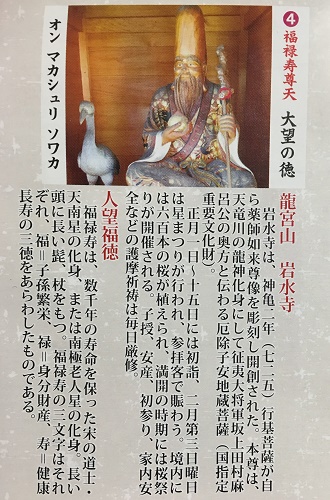 ❹福禄寿尊天 大望の徳
オン マカシュリ ソワカ
龍宮山 岩水寺
岩水寺は、神亀二年（七二五）行基菩薩が自
ら薬師如来尊像を彫刻し開創された。本尊は、
天竜川の龍神化身にして征夷大将軍坂上田村麻
呂公の奥方と伝わる厄除子安地蔵菩薩（国指定
重要文化財）。
正月一日〜十五日には初詣、二月第三日曜日
は星まつりが行われ、参拝客で賑わう。境内に
は六百本の桜が植えられ、満開の時期には桜祭
りが開催される。子授、安産、初参り、家内安
全などの護摩祈祷は毎日厳修。
人望福徳
福禄寿は、数千年の寿命を保った宋の道士・
天南星の化身、または南極老人星の化身。長い
頭に長い髭、杖をもつ。福禄寿の三文字はそれ
ぞれ、福＝子孫繁栄、禄＝身分財産、寿＝健康
長寿の三徳をあらわしたものである。